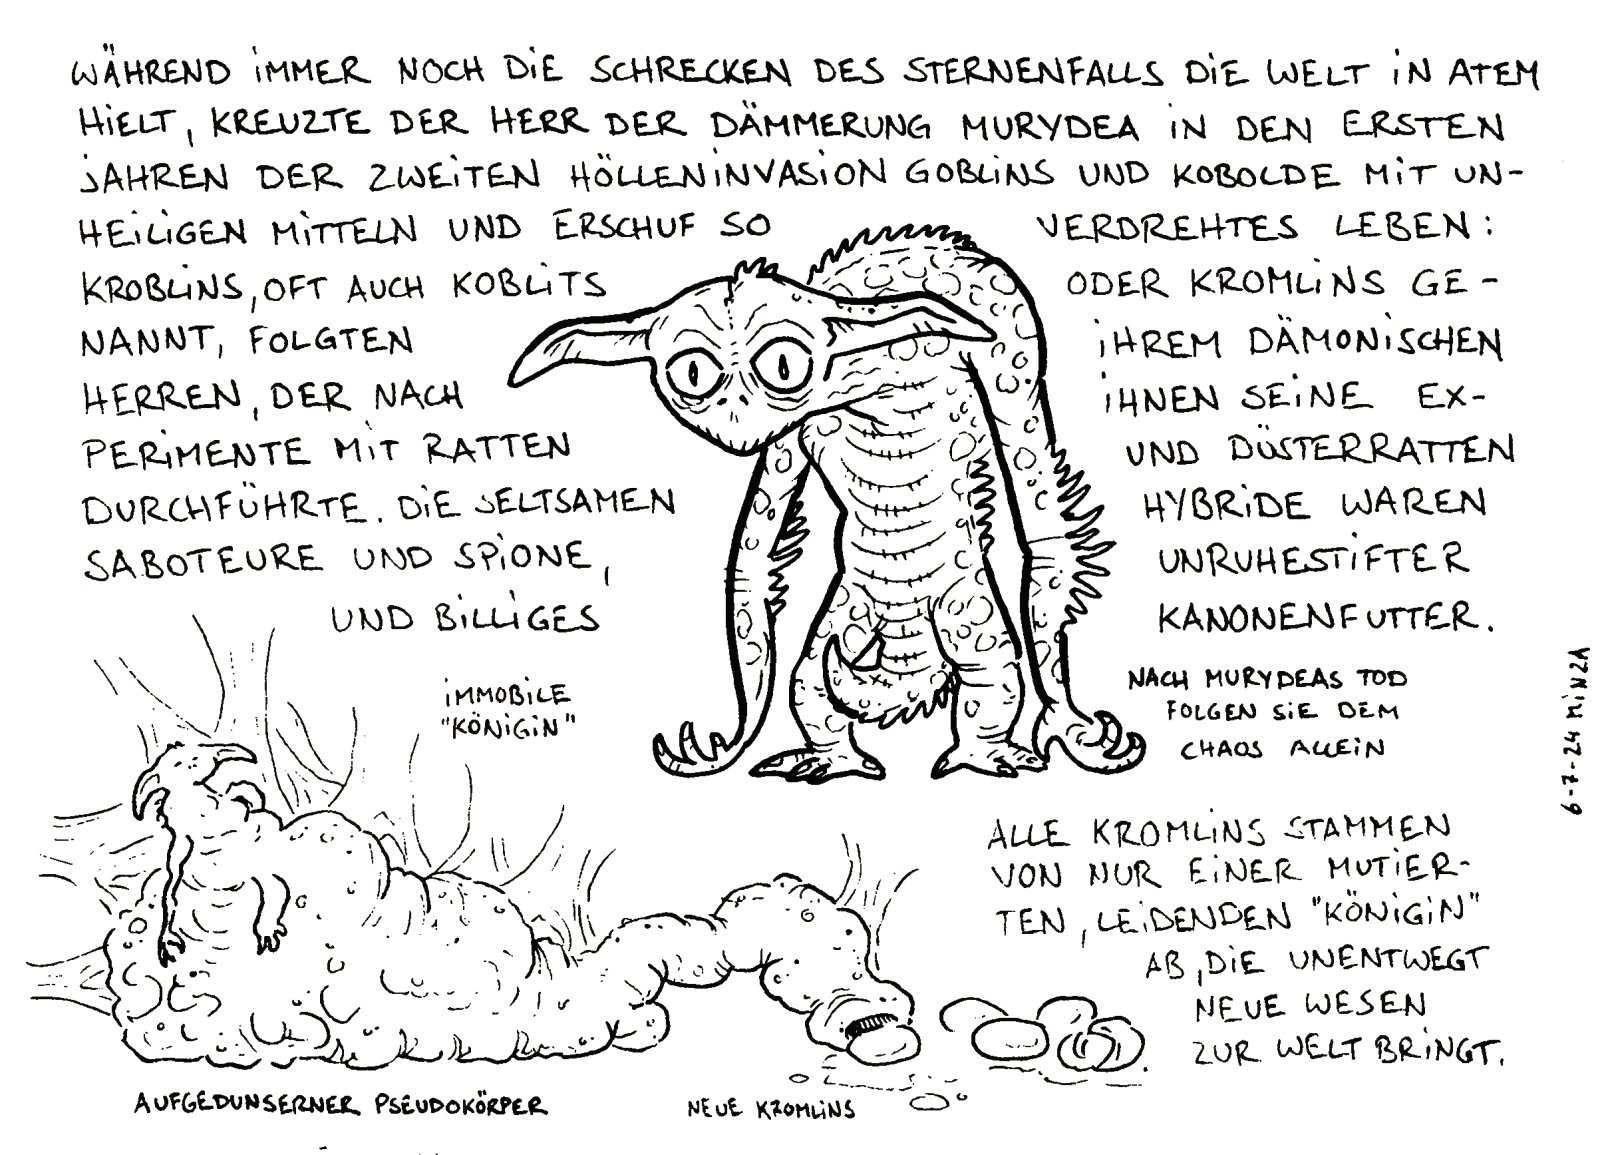 WÄHREND IMMER NOCH DIE SCHRECKEN DES STERNENFALLS DIE WELT IN ATEM
HIELT, KREUZTE DER HERR DER DÄMMERUNG MURYDEA IN DEN ERSTEN
JAHREN DER ZWEITEN HÖLLENINVASION GOBLINS UND KOBOLDE MIT UN-
HEILIGEN MITTELN UND ERSCHUF SO VERDREHTES LEBEN:
KROBLINS, OFT AUCH KOBLITS ODER KROMLINS GE-
NANNT, FOLGTEN IHREM DÄMONISCHEN
HERREN, DER NACH IHNEN SEINE EX-
PERIMENTE MIT RATTEN UND DÜSTERRATTEN
DURCHFÜHRTE. DIE SELTSAMEN HYBRIDE WAREN
SABOTEURE UND SPIONE, UNRUHESTIFTER
UND BILLIGES KANONENFUTTER.
NACH MURYDEAS TOD
FOLGEN SIE DEM
CHAOS ALLEIN
IMMOBILE
"KÖNIGIN"
ALLE KROMLINS STAMMEN
VON NUR EINER MUTIER-
TEN, LEIDENDEN "KÖNIGIN"
AB, DIE UNENTWEGT
NEUE WESEN
ZUR WELT BRINGT.
AUFGEDUNSERNER PSEUDOKÖRPER
NEUE KROMLINS
6-7-24 MINZA